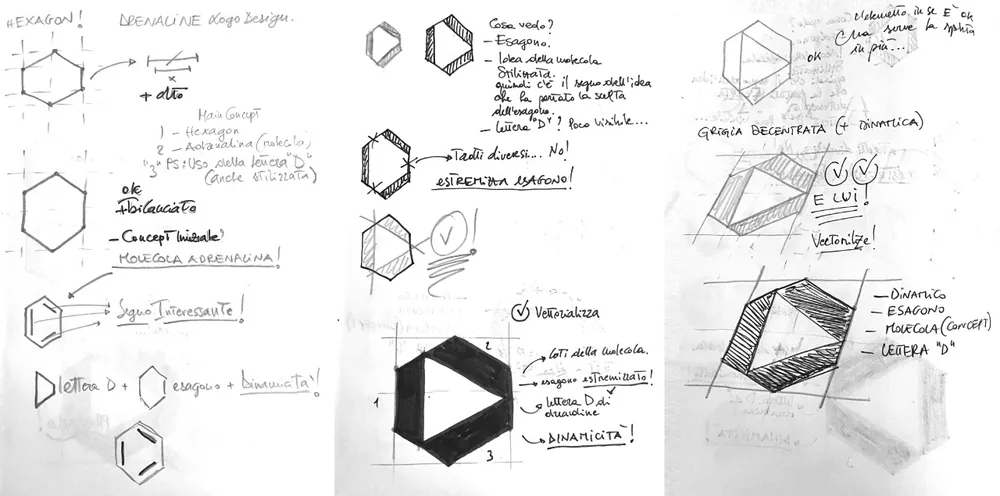 HEXAGON!
DRENALINE Logo Design.
x
+ alto
Main Concept
1 – Hexagon
2 – Adrenalina (molecola)
"3" PS: Uso della lettera "D"
(anche stilizzata)
ok
+ bilanciato
– Concept Iniziale
MOLECOLA ADRENALINA!
Segno Interessante!
lettera D + esagono +
Cosa vedo?
– Esagono.
– Idea della molecola
Stilizzata.
quindi c'è il segno dell'idea
che ha portato la scelta
dell'esagono.
– lettera "D"? Poco visibile...
Tratti diversi... No!
ESTREMIZZA ESAGONO!
Vettorializza
1
2
3
Lati della molecola.
esagono estremizzato!
lettera D di
drenaline
DINAMICITÀ!
in se È ok
ma serve la
in più...
ok
GRIGLIA DECENTRATA (+ DINAMICA)
E LUI!
– DINAMICO
– ESAGONO
– MOLECOLA (CONCEPT)
– LETTERA "D"